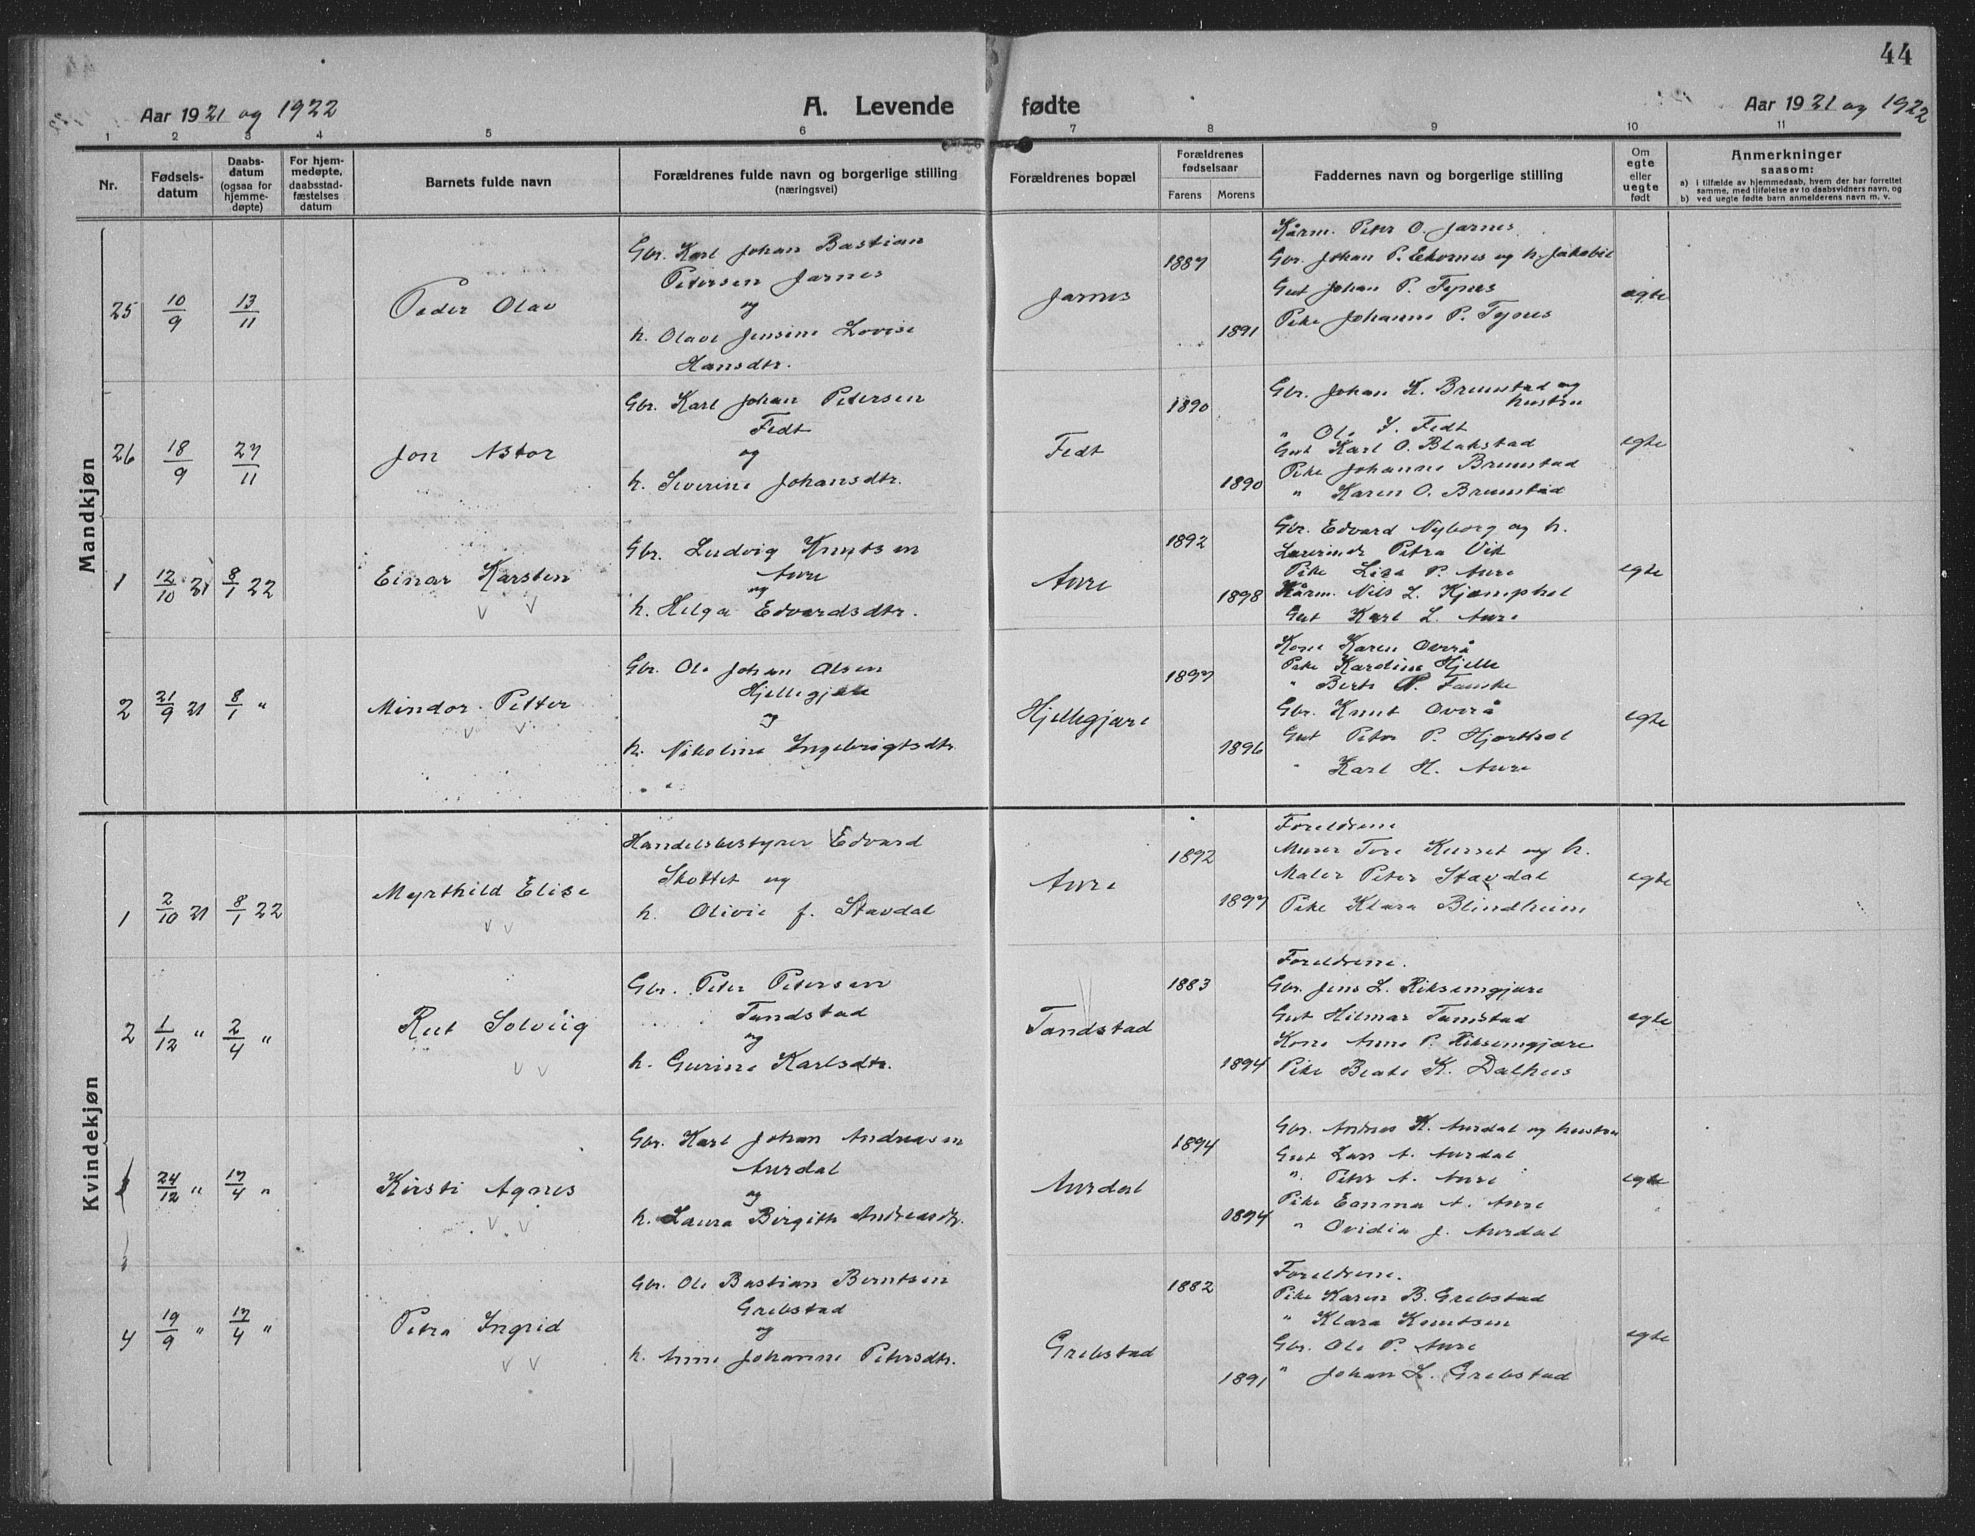 44
Aar 1921 og 1922
A. Levende fødte
Aar 1921 og 1922
1 2 3 4 5 6 7 8 9 10 11
Nr.
Fødsels-
datum
Daabs-
datum
(ogsaa for
hjemme-
døpte)
For hjem-
medøpte,
daabsstad-
fæstelses
datum
Barnets fulde navn
Forældrenes fulde navn og borgerlige stilling
(næringsvei)
Forældrenes bopæl
Forældrenes
fødselsaar
Farens Morens
Faddernes navn og borgerlige stilling
Om
egte
eller
uegte
født
Anmerkninger
saasom:
a) i tilfælde av hjemmedaab, hvem der har forrettet
samme, med tilføielse av to daabsvidners navn, og
b) ved uegte fødte barn anmelderens navn m. v.
Mandkjøn
25 10/9 13/11
Peder Olav
Gbr. Karl Johan Bastian
Petersen Jarnes
og
h. Olave Jensine Lovise
Hansdtr.
Jarnes
1887
1891
Kårm. Peter O. Jarnes
Gbr. Johan P. Ekornes og h. Jakobie
Gut Johan P. Tynes
Pike Johanne P. Tynes
egte
26 18/9 27/11
Jon Astor
Gbr. Karl Johan Petersen
Fedt
og
h. Severine Johansdtr.
Fedt
1890
1890
Gbr. Johan K. Brunstad og
hustru
" Ole J. Fedt
Gut Karl O. Blakstad
Pike Johanne Brunstad
" Karen O. Brunstad
egte
1 12/10 21 8/1 22
Einar Karsten
Gbr. Ludvig Knutsen
Aure
og
h. Helga Edvardsdtr.
Aure
1892
1898
Gbr. Edvard Nyborg og h.
Lærerinde Petra Vik
Pike Lisa P. Aure
Kårm. Nils L. Kjemphol
Gut Karl L. Aure
egte
2 21/9 21 8/1 "
Mindor Petter
Gbr. Ole Johan Olsen
Hjellegjære
og
h. Nikoline Ingebrigtsdtr.
Hjellegjære
1897
1896
Kone Karen Overå
Pike Kardine Hjelle
" Berte P. Fauske
Gbr. Knut Overå
Gut Peter P. Hjorthol
" Karl H. Aure
egte
Kvindekjøn
1 2/10 21 8/1 22
Myrthild Elise
Handelsbestyrer Edvard
Skottet og
h. Olivie J. Stavdal
Aure
1892
1897
Foreldrene
Murer Tore Kurset og h.
Maler Peter Stavdal
Pike Klara Blindheim
egte
2 1/12 " 2/4 "
Rut Solveig
Gbr. Peter Petersen
Tandstad
og
h. Gurine Karlsdtr.
Tandstad
1883
1894
Foreldrene.
Gbr. Jens L. Riksemgjære
Gut Hilmar Tandstad
Kone Anne P. Riksemgjære
Pike Beate K. Dalhus
egte
3 24/12 " 17/4 "
Kirsti Agnes
Gbr. Karl Johan Andreasen
Aurdal
og
h. Laura Birgith Andreasdtr.
Aurdal
1894
1894
Gbr. Andreas K. Aurdal og hustru
Gut Lars A. Aurdal
" Peter A. Aure
Pike Emma A. Aure
" Ovidia J. Aurdal
egte
4 19/9 " 17/4 "
Petra Ingrid
Gbr. Ole Bastian Berntsen
Grebstad
og
h. Anne Johanne Petersdtr.
Grebstad
1882
1891
Foreldrene.
Pike Karen B. Grebstad
" Klara Knutsen
Gbr. Ole P. Aure
" Johan L. Grebstad
egte